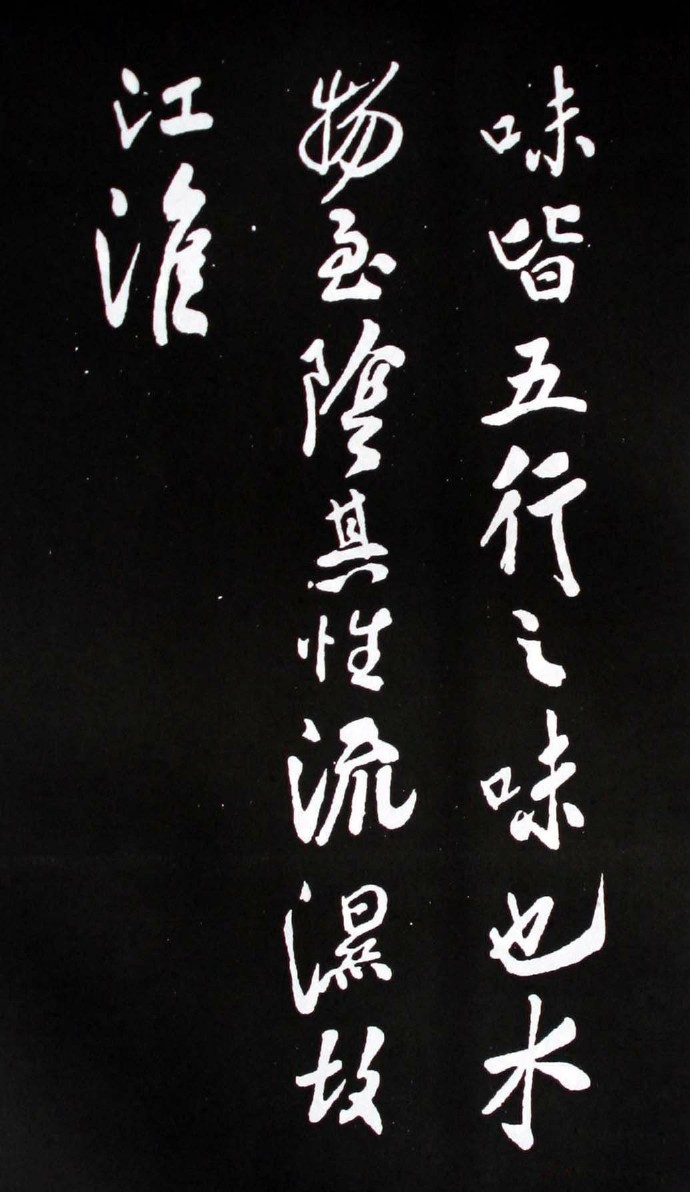 味皆五行之味也水
物至陰其性流濕故
江淮